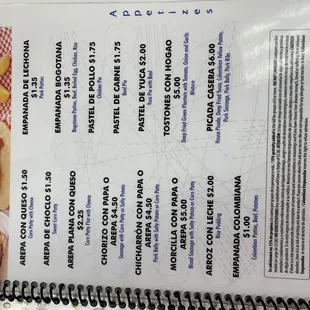 Appetizes
EMPANADA DE LECHONA
$1.35
Pork Patties
EMPANADA BOGOTANA
$1.35
Bogotana Patties, Beef, Boiled Egg, Chicken, Rice
PASTEL DE POLLO $1.75
Chicken Pie
PASTEL DE CARNE $1.75
Beef Pie
PASTEL DE YUCA $2.00
Yuca Pie with Beef
TOSTONES CON HOGAO
$5.00
Deep Fried Green Plantains with Tomato, Onion and Garlic
Mixture
PICADA CASERA $6.00
Pork Sausage, Pork Belly, Pork Ribs
AREPA CON QUESO $1.50
Corn Patty with Cheese
AREPA DE CHOCLO $1.50
Sweet Corn Patty
AREPA PLANA CON QUESO
$2.25
Corn Patty Flat with Cheese
CHORIZO CON PAPA O
AREPA $4.50
Sausage with Corn Patty or Salty Potato
CHICHARRÓN CON PAPA O
AREPA $4.50
Pork Belly with Salty Potato or Corn Patty
MORCILLA CON PAPA O
AREPA $5.00
Blood Sausage with Salty Potato or Corn Patty
ARROZ CON LECHE $2.00
Rice Pudding
EMPANADA COLOMBIANA
$1.00
Colombian Patties, Beef, Potatoes